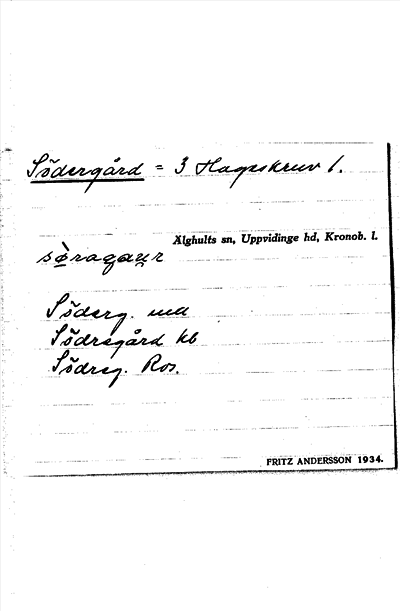 Södergård = 3 Hagaskruv 1.
Älghults sn, Uppvidinge hd, Kronob. l.
Söderg. md
Södregård kb
Södreg. Ros.
FRITZ ANDERSSON 1934.